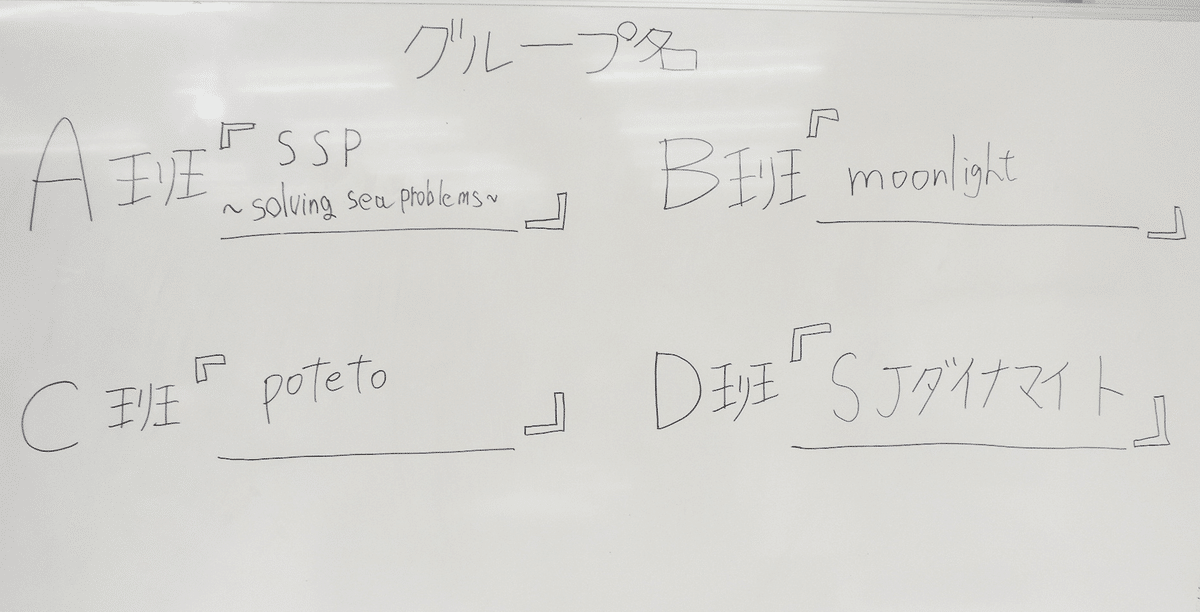 グループ名
A班『SSP
~solving sea problems~』
B班『moonlight』
C班『poteto』
D班『SJダイナマイト』